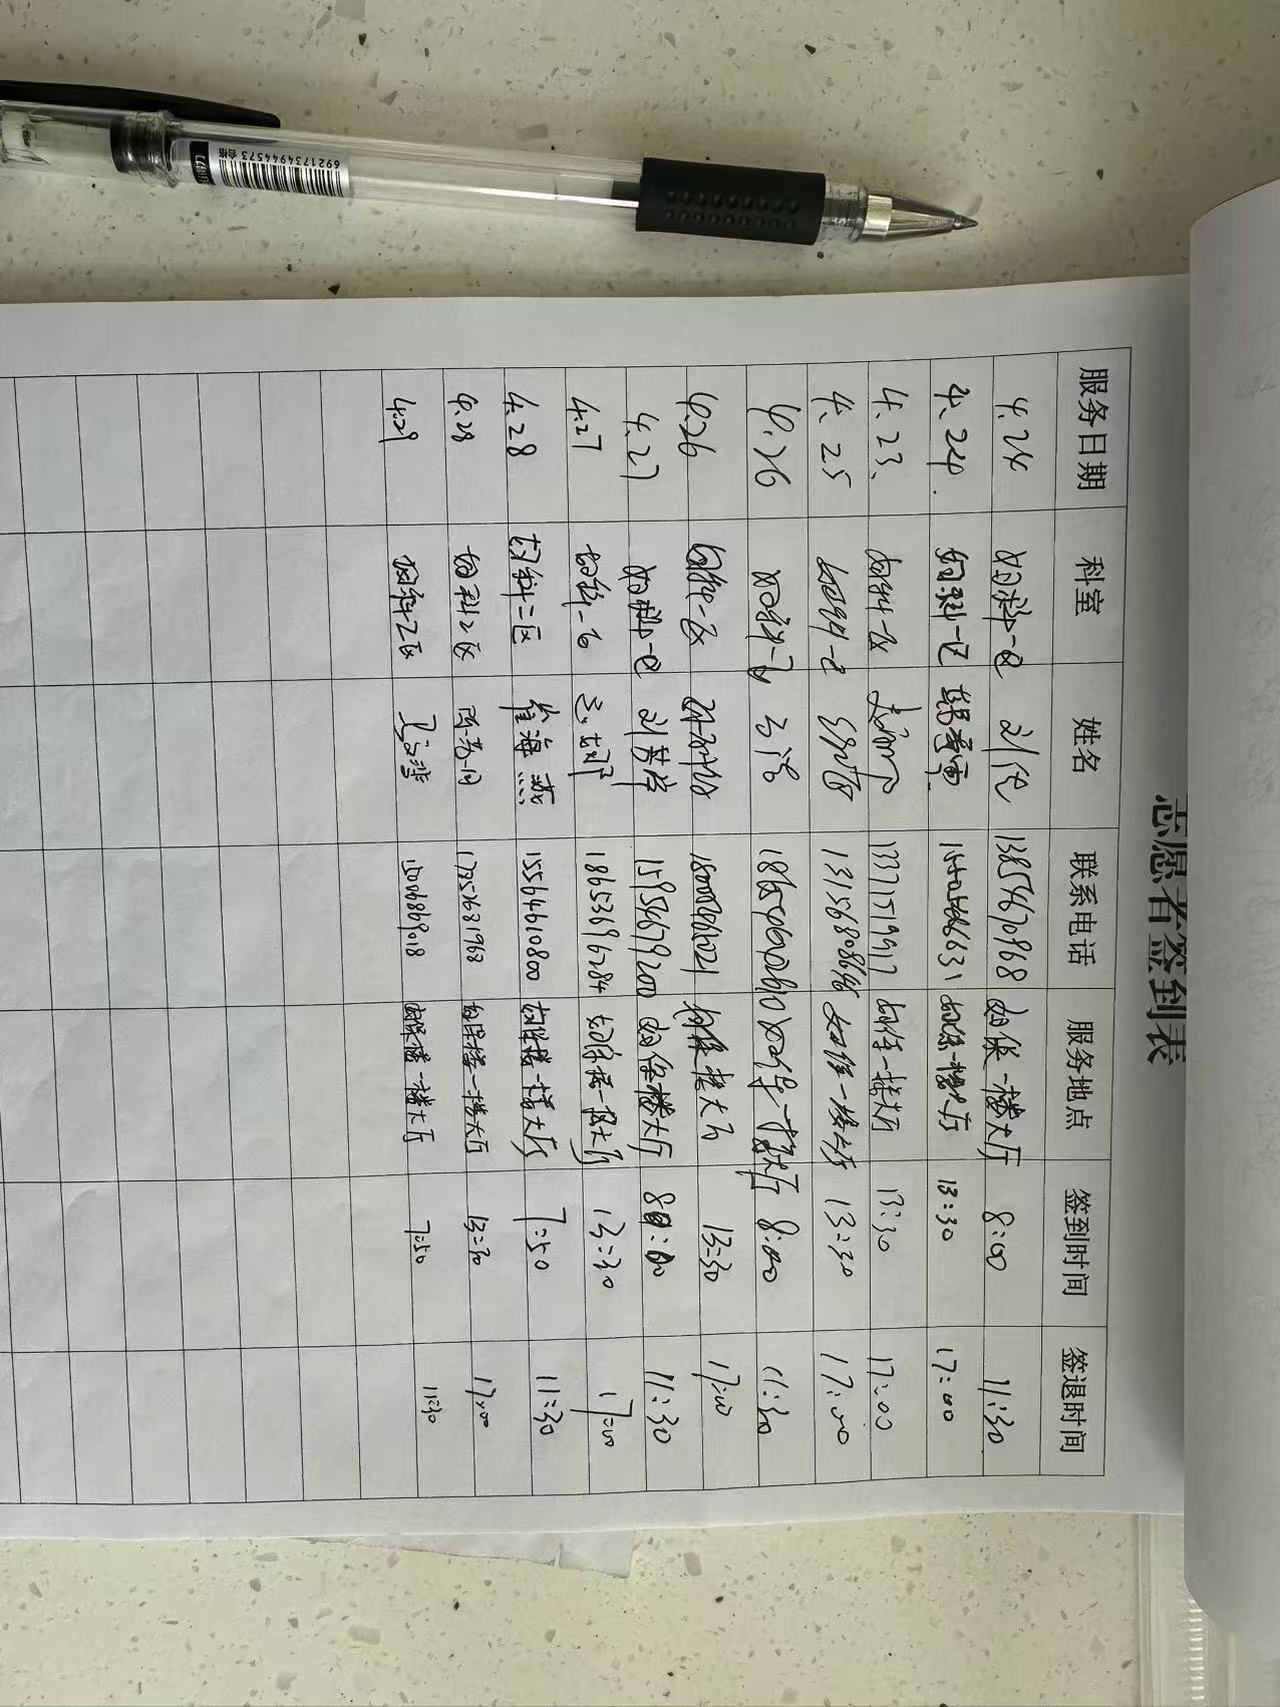 志愿者签到表
服务日期 科室 姓名 联系电话 服务地点 签到时间 签退时间
4.24 妇科一区 刘伦 13854670968 妇保一楼大厅 8:00 11:30
4.24. 妇科一区 妇保一楼大厅 13:30 17:00
4.23、 妇科一区 13371519917 妇保一楼大厅 13:30 17:00
4.25 妇科一区 13156808686 妇保一楼大厅 13:30 17:00
4.26 妇科一区 妇保一楼大厅 8:00 11:30
4.26 妇科一区 妇保楼大厅 13:30 17:00
4.27 妇科一区 刘芳萍 15954679200 妇保楼大厅 8:00 11:30
4.27 妇科一区 18653696284 妇保楼一楼大厅 13:30 17:00
4.28 妇科二区 崔海燕 15564610800 妇保楼一楼大厅 7:50 11:30
4.28 妇科2区 17352681968 妇保楼一楼大厅 13:30 17:00
4.29 妇科二区 15006869018 妇保楼一楼大厅 7:50 11:30
6921734944573